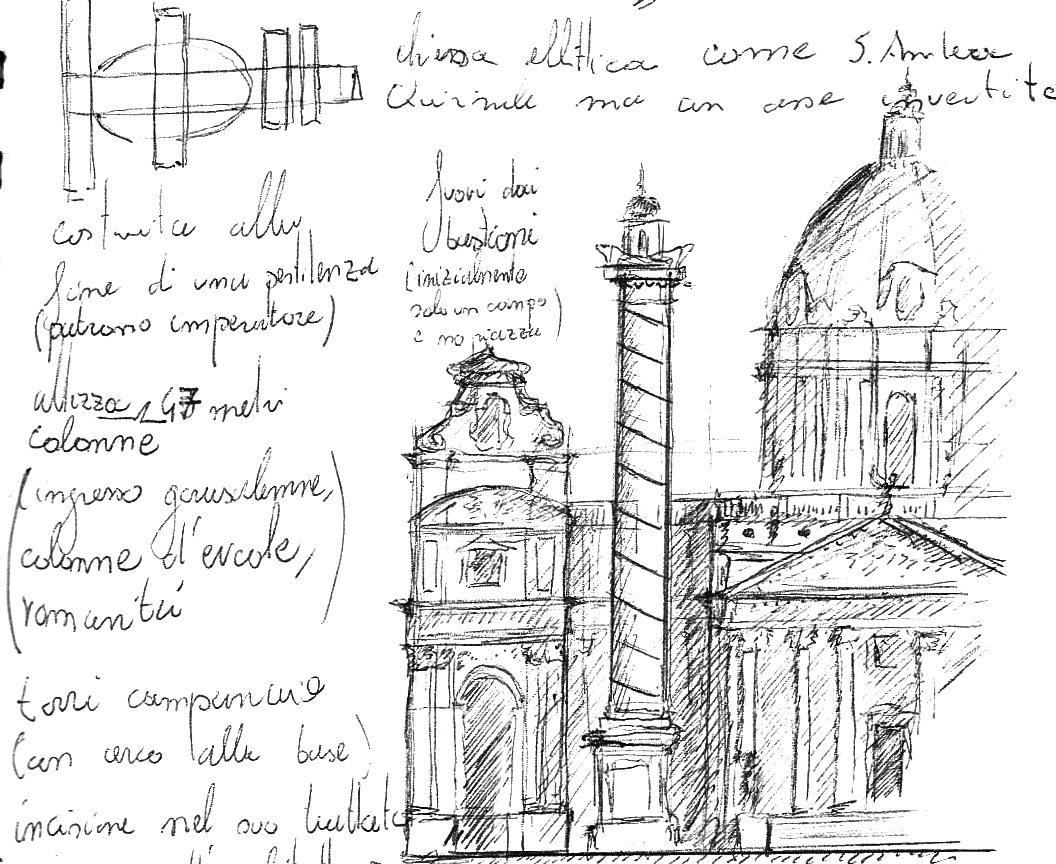 chiesa ellittica come S. Andrea
Quirinale ma con asse invertito
fuori dai
bastioni
(inizialmente
solo un campo
e no piazza)
costruita alla
fine di una pestilenza
(patrono imperatore)
altezza 47 metri
colonne
(ingresso gerusalemme,
colonne d'ercole,
romanità)
torri campanarie
(con arco alla base)
incisione nel suo trattato